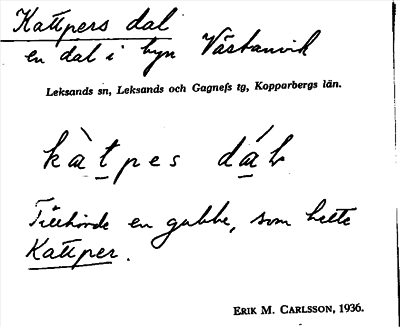 Kattpers dal
en dal i byn Västanvik
Leksands sn, Leksands och Gagnefs tg, Kopparbergs län.
kàt̲pes dá̲ƚ
Tillhörde en gubbe, som hette
Kattper.
ERIK M. CARLSSON, 1936.